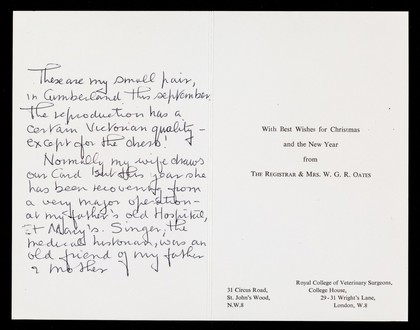 These are my small pair,
in Cumberland this september.
The reproduction has a
certain Victorian quality -
except for the dress!
Normally my wife draws
our Card but this year she
has been recovering from
a very major operation -
at my father's old Hospital,
St Mary's. Singer, the
medical historian, was an
old friend of my father
& mother
With Best Wishes for Christmas
and the New Year
from
THE REGISTRAR & MRS. W. G. R. OATES
31 Circus Road,
St. John's Wood,
N.W.8
Royal College of Veterinary Surgeons,
College House,
29-31 Wright's Lane,
London, W.8